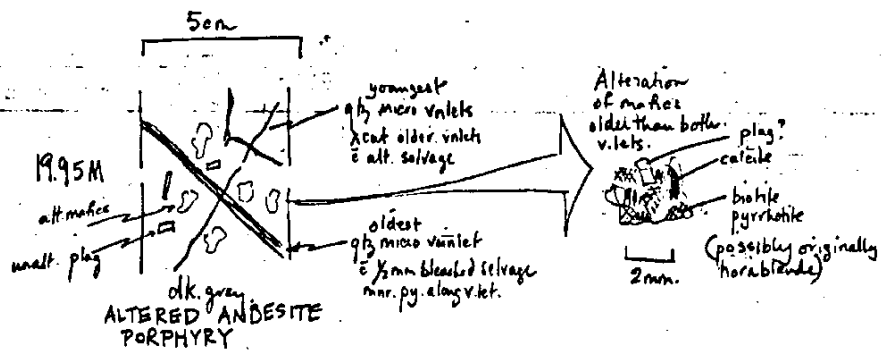 5cm
19.95M
alt. mafics
unalt. plag
youngest
qtz micro vnlets
xcut older vnlets
c̄ alt. selvage
oldest
qtz micro veinlet
c̄ ½mm bleached selvage
mnr. py. along v.let.
dk. gray
ALTERED ANDESITE
PORPHYRY
Alteration
of mafics
older than both
v.lets.
plag?
calcite
biotite
pyrrhotite
(possibly originally
hornblende)
2mm.